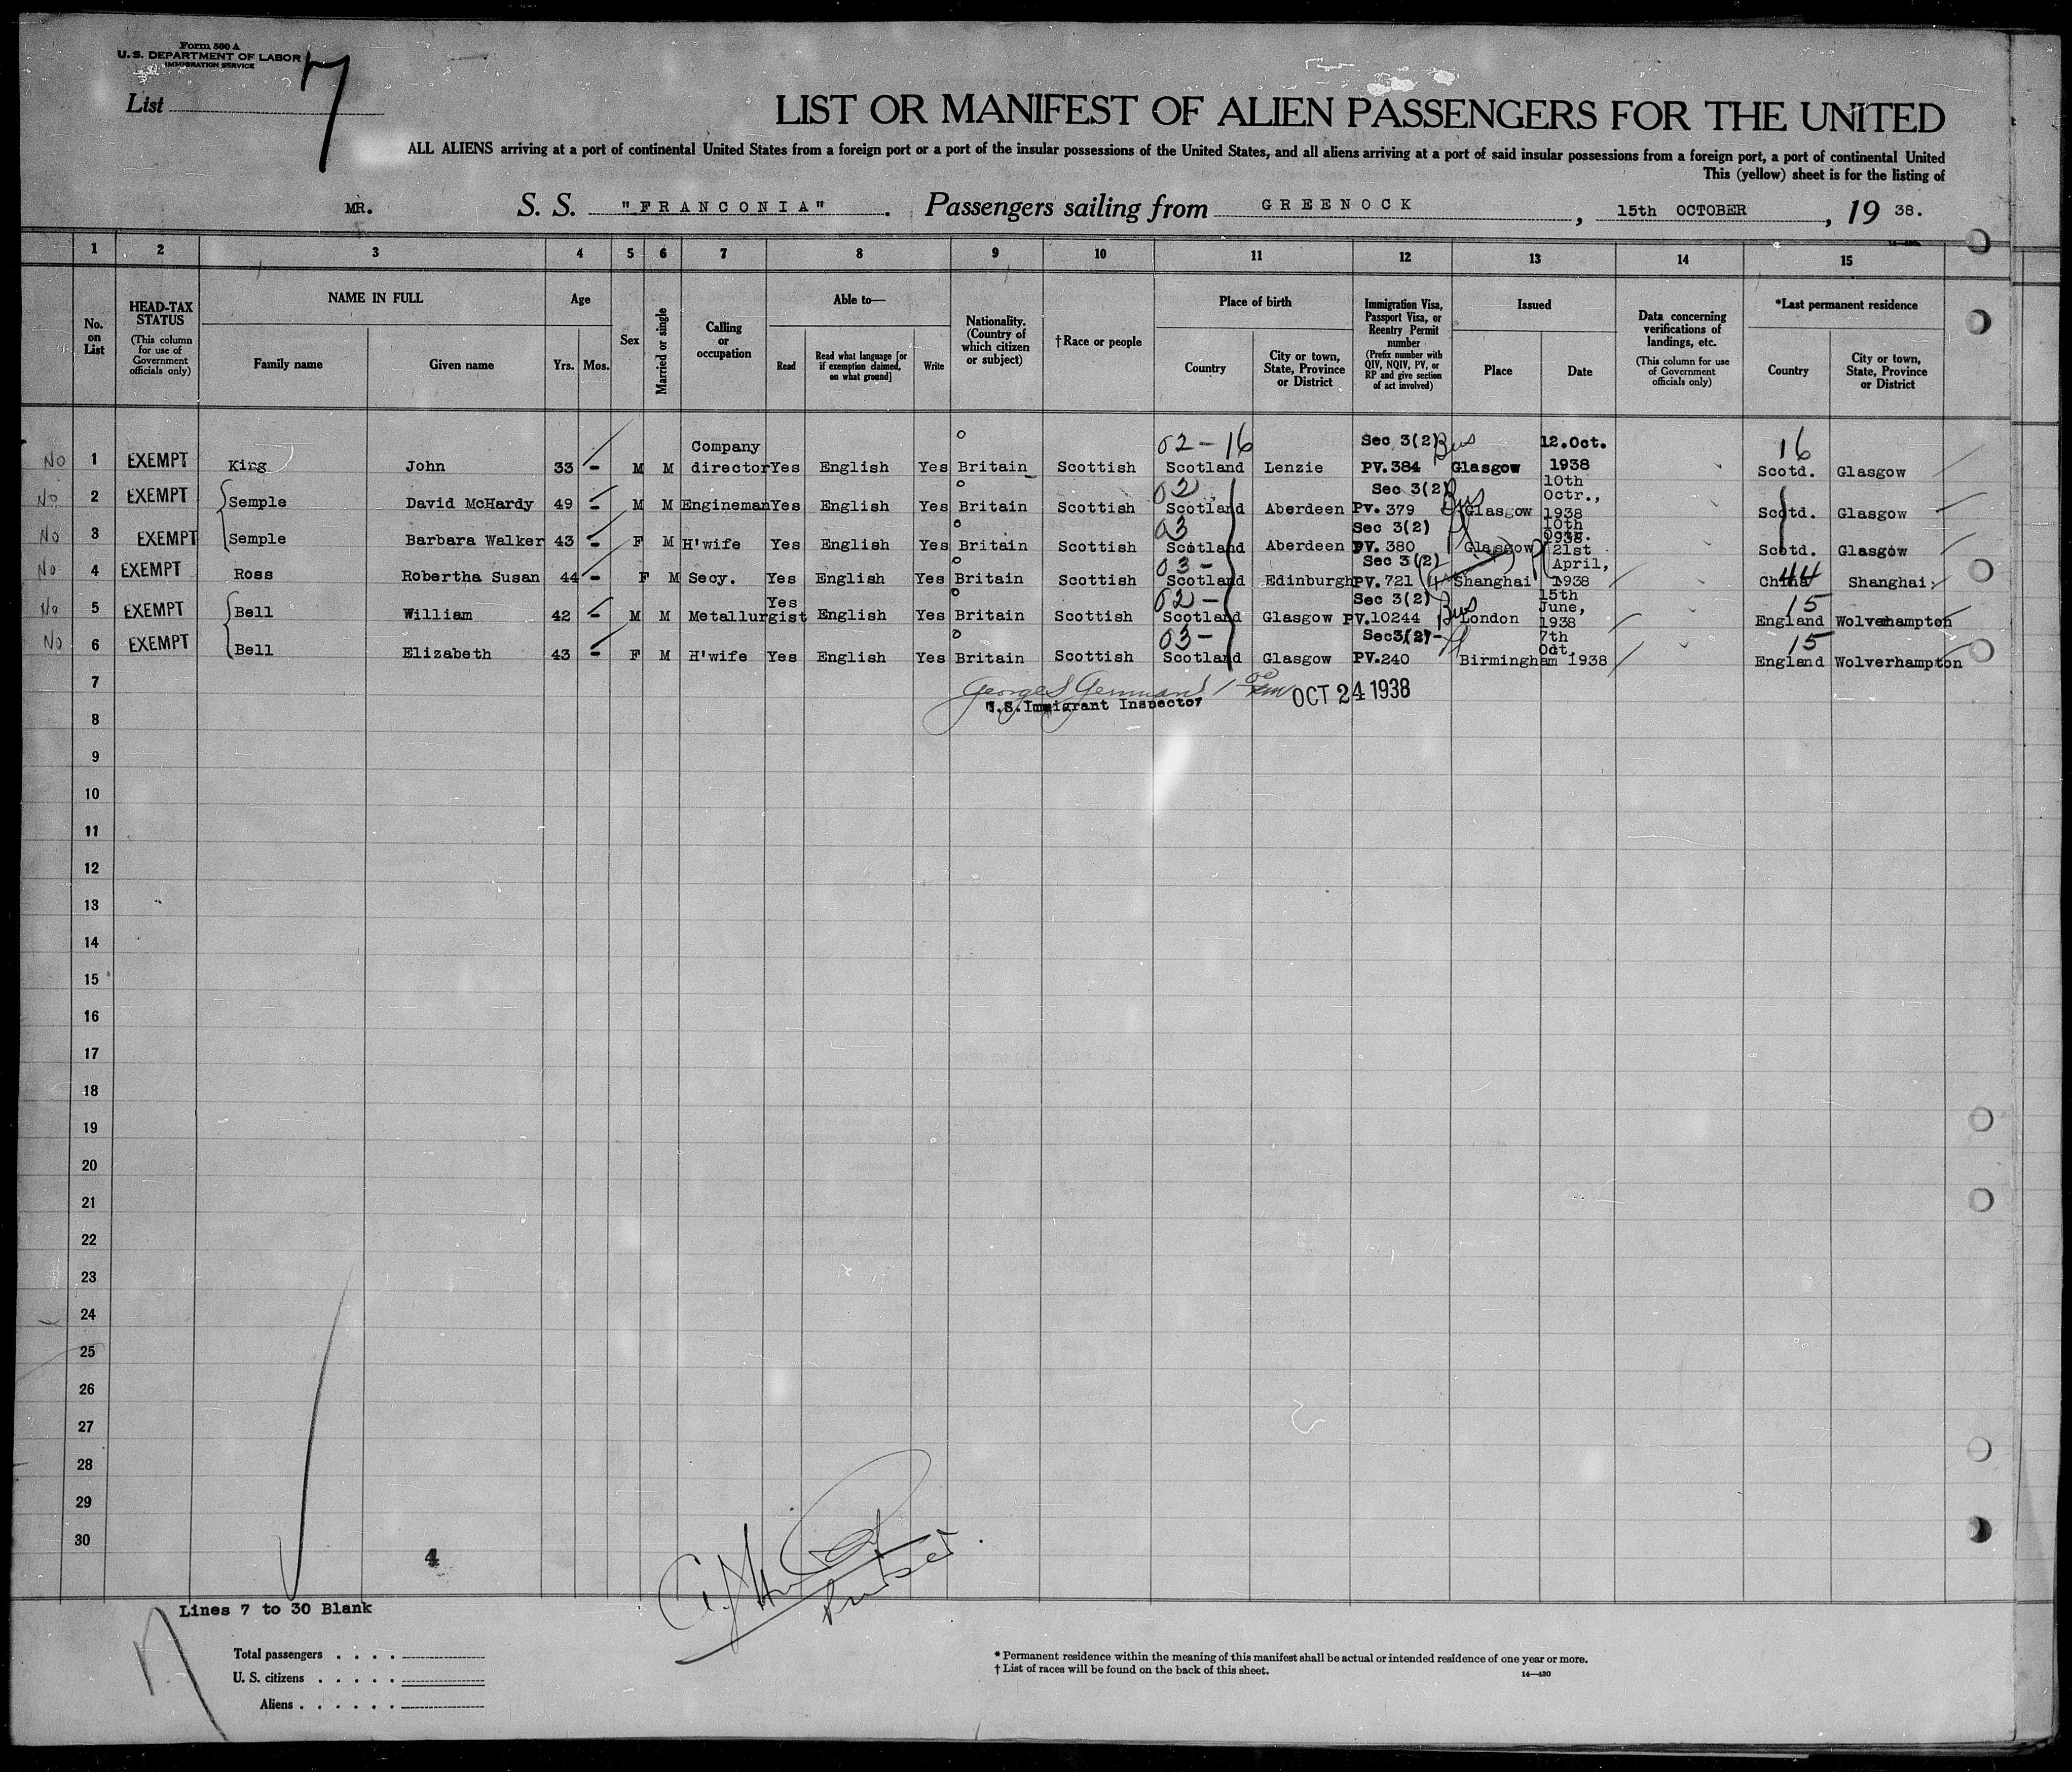 Form 500 A
U. S. DEPARTMENT OF LABOR
IMMIGRATION SERVICE
List 7
LIST OR MANIFEST OF ALIEN PASSENGERS FOR THE UNITED
ALL ALIENS arriving at a port of continental United States from a foreign port or a port of the insular possessions of the United States, and all aliens arriving at a port of said insular possessions from a foreign port, a port of continental United
This (yellow) sheet is for the listing of
MR. S. S. "FRANCONIA". Passengers sailing from GREENOCK, 15th OCTOBER, 19 38.
1 2 3 4 5 6 7 8 9 10 11 12 13 14 15
No. on List
HEAD-TAX STATUS (This column for use of Government officials only)
NAME IN FULL Family name Given name
Age Yrs. Mos.
Sex
Married or single
Calling or occupation
Able to— Read Read what language [or if exemption claimed, on what ground] Write
Nationality. (Country of which citizen or subject)
†Race or people
Place of birth Country City or town, State, Province or District
Immigration Visa, Passport Visa, or Reentry Permit number (Prefix number with QIV, NQIV, PV, or RP and give section of act involved)
Issued Place Date
Data concerning verifications of landings, etc. (This column for use of Government officials only)
*Last permanent residence Country City or town, State, Province or District
No 1 EXEMPT King John 33 - M M Company director Yes English Yes Britain Scottish 02-16 Scotland Lenzie Sec 3(2) PV.384 Bus Glasgow 12.Oct. 1938 16 Scotd. Glasgow
No 2 EXEMPT Semple David McHardy 49 - M M Engineman Yes English Yes Britain Scottish 02 Scotland Aberdeen Sec 3(2) PV. 379 Bus Glasgow 10th Octr., 1938 Scotd. Glasgow
No 3 EXEMPT Semple Barbara Walker 43 - F M H'wife Yes English Yes Britain Scottish 03 Scotland Aberdeen Sec 3(2) PV. 380 Glasgow 10th Octr. 1938. Scotd. Glasgow
No 4 EXEMPT Ross Robertha Susan 44 - F M Secy. Yes English Yes Britain Scottish 03- Scotland Edinburgh Sec 3(2) PV. 721 Shanghai 21st April, 1938 44 China Shanghai
No 5 EXEMPT Bell William 42 - M M Metallurgist Yes English Yes Britain Scottish 02- Scotland Glasgow Sec 3(2) PV.10244 Bus London 15th June, 1938 15 England Wolverhampton
No 6 EXEMPT Bell Elizabeth 43 - F M H'wife Yes English Yes Britain Scottish 03- Scotland Glasgow Sec3(2)- PV.240 Birmingham 7th Oct. 1938 15 England Wolverhampton
7 U.S.Immigrant Inspector OCT 24 1938
8
9
10
11
12
13
14
15
16
17
18
19
20
21
22
23
24
25
26
27
28
29
30
4
Purser
Lines 7 to 30 Blank
Total passengers . . . .
U. S. citizens . . . . .
Aliens . . . . . .
* Permanent residence within the meaning of this manifest shall be actual or intended residence of one year or more.
† List of races will be found on the back of this sheet.
14—430